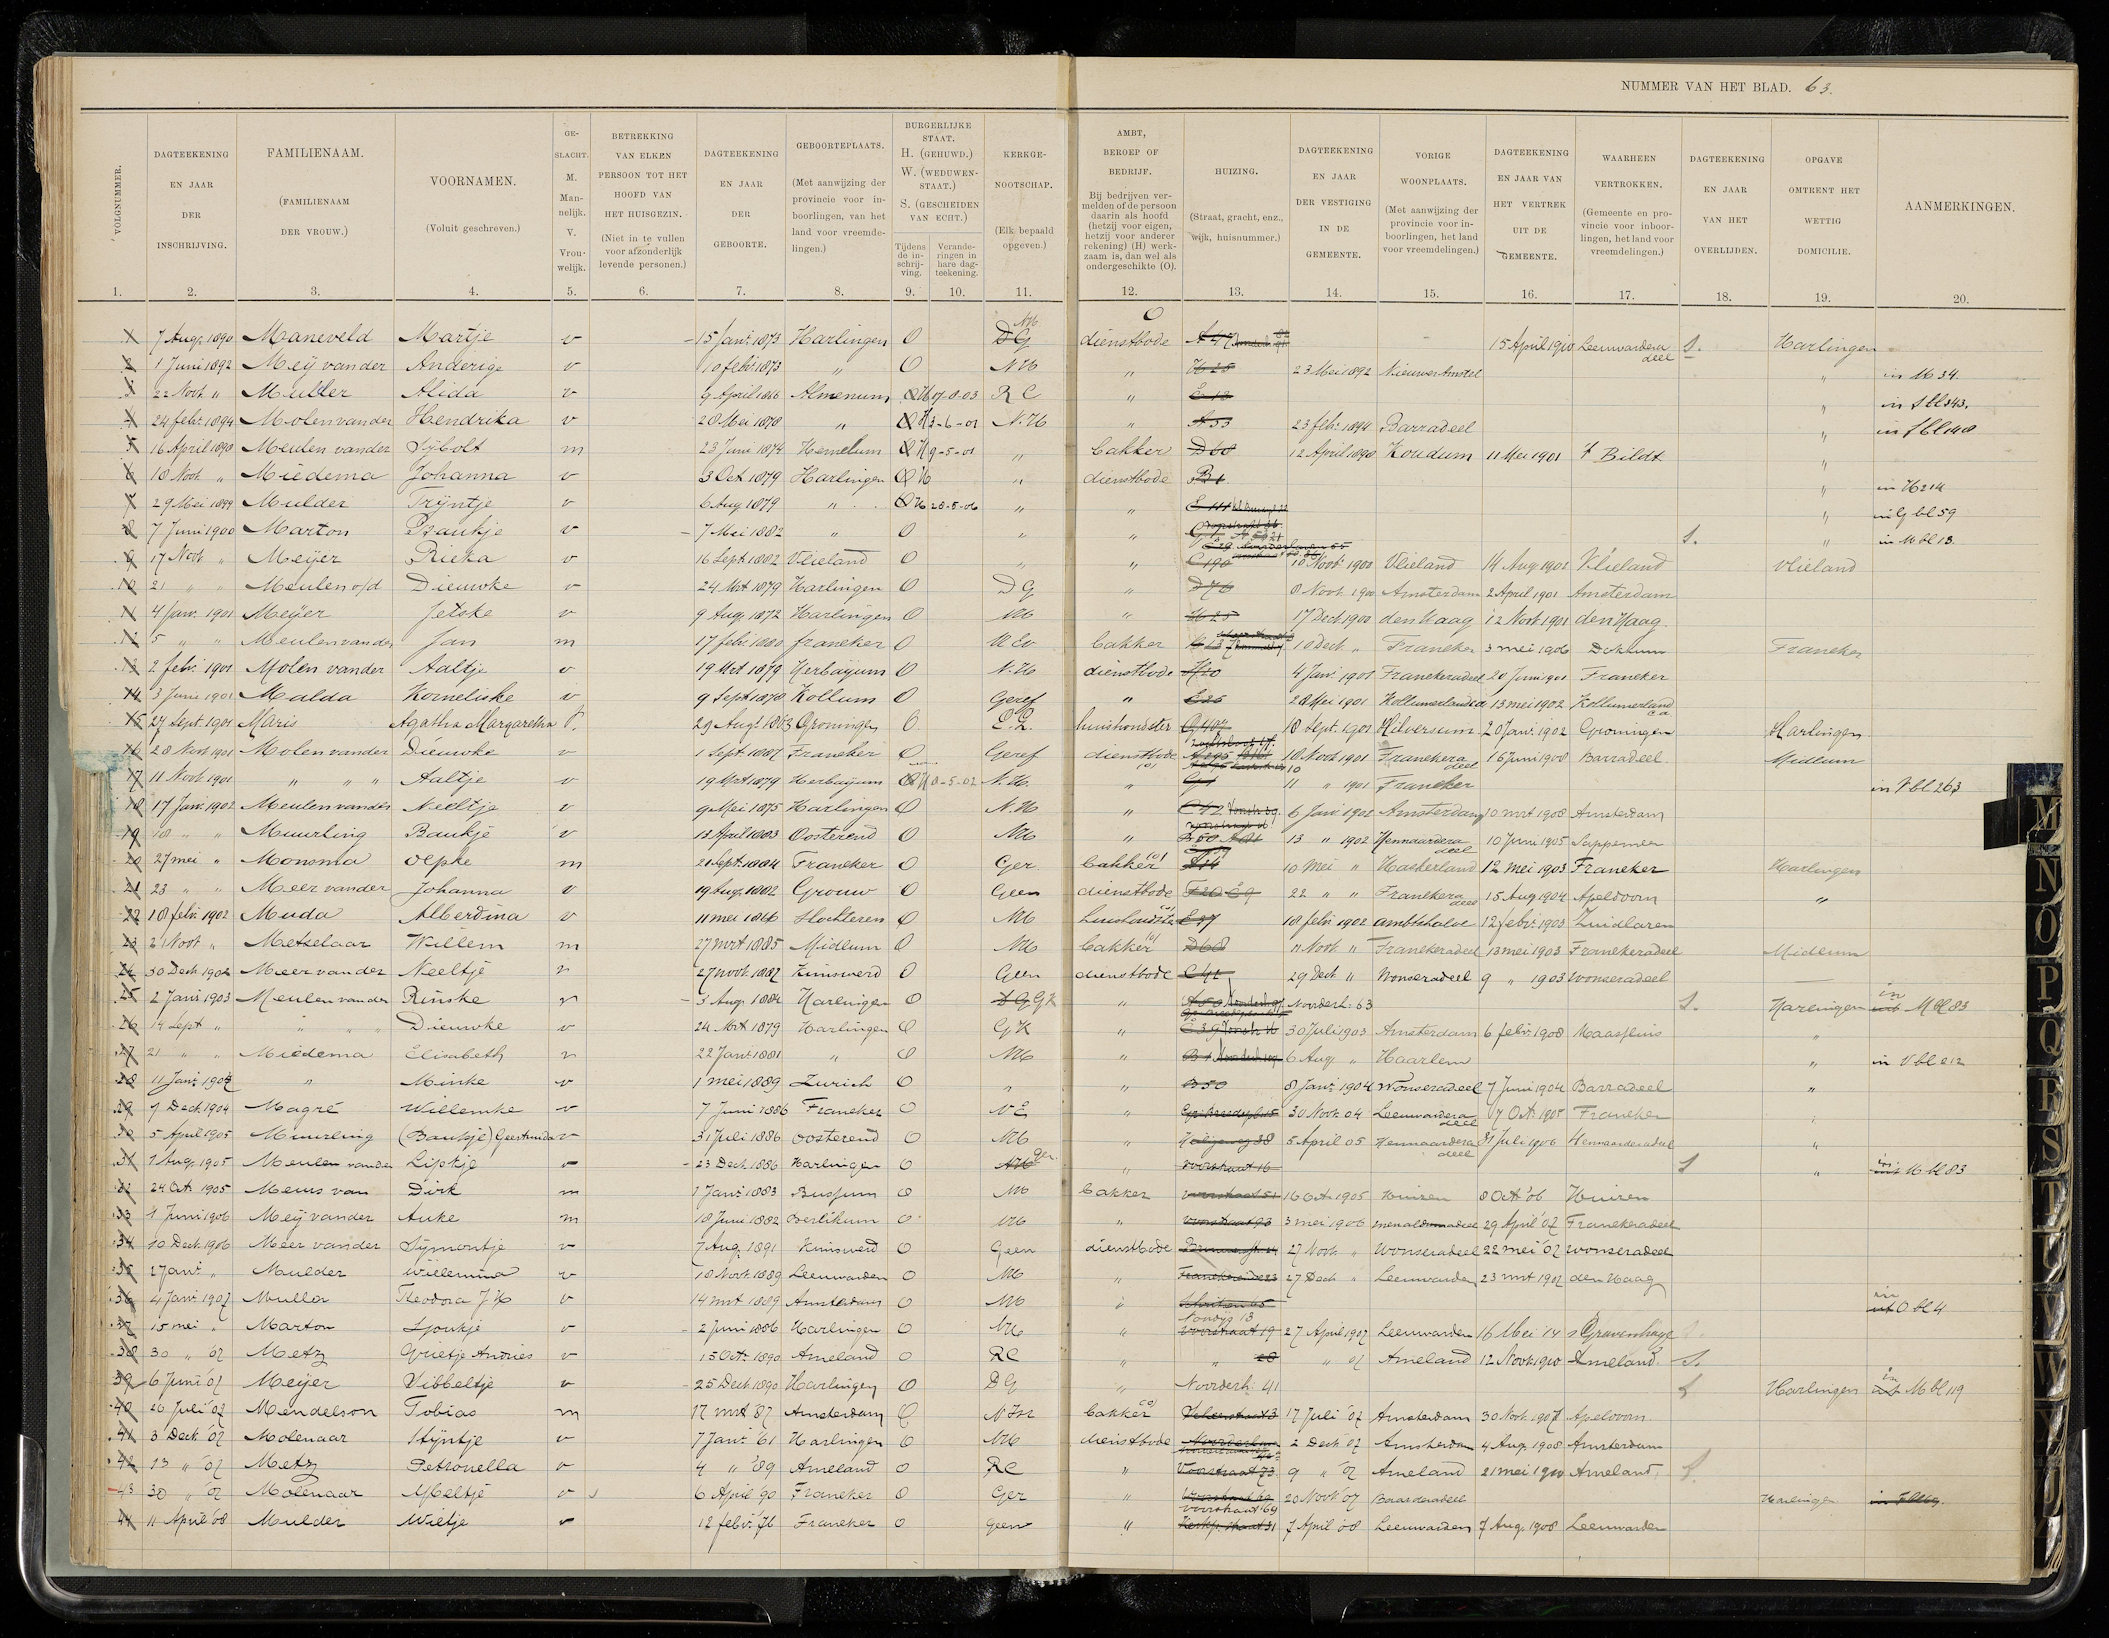 NUMMER VAN HET BLAD. 63.
VOLGNUMMER. DAGTEEKENING EN JAAR DER INSCHRIJVING. FAMILIENAAM. (FAMILIENAAM DER VROUW.) VOORNAMEN. (Voluit geschreven.) GESLACHT. M. Mannelijk. V. Vrouwelijk. BETREKKING VAN ELKEN PERSOON TOT HET HOOFD VAN HET HUISGEZIN. (Niet in te vullen voor afzonderlijk levende personen.) DAGTEEKENING EN JAAR DER GEBOORTE. GEBOORTEPLAATS. (Met aanwijzing der provincie voor inboorlingen, van het land voor vreemdelingen.) BURGERLIJKE STAAT. H. (GEHUWD.) W. (WEDUWENSTAAT.) S. (GESCHEIDEN VAN ECHT.) Tijdens de inschrijving. Veranderingen in hare dagteekening. KERKGENOOTSCHAP. (Elk bepaald opgeven.) AMBT, BEROEP OF BEDRIJF. Bij bedrijven vermelden of de persoon daarin als hoofd (hetzij voor eigen, hetzij voor anderer rekening) (H) werkzaam is, dan wel als ondergeschikte (O). HUIZING. (Straat, gracht, enz., wijk, huisnummer.) DAGTEEKENING EN JAAR DER VESTIGING IN DE GEMEENTE. VORIGE WOONPLAATS. (Met aanwijzing der provincie voor inboorlingen, het land voor vreemdelingen.) DAGTEEKENING EN JAAR VAN HET VERTREK UIT DE GEMEENTE. WAARHEEN VERTROKKEN. (Gemeente en provincie voor inboorlingen, het land voor vreemdelingen.) DAGTEEKENING EN JAAR VAN HET OVERLIJDEN. OPGAVE OMTRENT HET WETTIG DOMICILIE. AANMERKINGEN.
1. 2. 3. 4. 5. 6. 7. 8. 9. 10. 11. 12. 13. 14. 15. 16. 17. 18. 19. 20.
1 7 Aug. 1890 Maneveld Martje v 15 Janr. 1873 Harlingen O DG NH dienstbode A 47 15 April 1910 Leeuwarderadeel S. Harlingen
2 1 Juni 1892 Meij van der Anderige v 10 febr. 1873 " O NH " H 25 23 Mei 1892 Nieuwer Amstel " in M 34.
3 22 Novb. " Mulder Alida v 9 April 1866 Almenum O H 17-8-03 RC " E 12 " in S bl 343.
4 24 febr. 1894 Molen van der Hendrika v 28 Mei 1878 " O H 3-6-01 N.H " A 53 23 febr. 1894 Barradeel "
5 16 April 1898 Meulen van der Sijbolt m 23 Juni 1874 Hemelum O H 9-5-01 " bakker D 68 12 April 1898 Koudum 11 Mei 1901 't Bildt "
6 18 Novb. " Miedema Johanna v 3 Oct 1879 Harlingen O H " dienstbode B 1 " in H 214
7 29 Mei 1899 Mulder Trijntje v 6 Aug 1879 " O H 28-5-06 " " E 111 " in G bl 59
8 7 Juni 1900 Marton Baukje v 7 Mei 1882 " O " " S. " in M bl 13.
9 17 Novb. " Meijer Rieka v 16 Sept 1882 Vlieland O " " C 190 10 Novb. 1900 Vlieland 14 Aug 1902 Vlieland Vlieland
10 21 " " Meulen v/d Dieuwke v 24 Mrt 1879 Harlingen O DG " D 76 8 Novb. 1900 Amsterdam 2 April 1901 Amsterdam
11 4 Janr. 1901 Meijer Jetske v 9 Aug 1872 Harlingen O NH " H 25 17 Decb 1900 den Haag 12 Novb 1901 den Haag.
12 5 " " Meulen van der Jan m 17 febr. 1880 franeker O bakker 10 Decb " Franeker 3 mei 1906 Dokkum Franeker
13 2 febr. 1901 Molen van der Aaltje v 19 Mrt 1879 Herbaijum O N.H dienstbode H 20 4 Janr. 1901 Franekeradeel 20 Juni 1901 Franeker
14 3 Juni 1901 Malda Korneliske v 9 Sept 1878 Kollum O Geref " E 25 28 Mei 1901 Kollumerland ca 13 mei 1902 Kollumerland c.a
15 27 Sept. 1901 Maris Agatha Margaretha V. 29 Aug. 1863 Groningen O. E.L. huishoudster 18 Sept. 1901 Hilversum 20 Janr. 1902 Groningen Harlingen
16 28 Novb. 1901 Molen van der Dieuwke v 1 Sept. 1887 Franeker O Geref dienstbode 18 Novb. 1901 Franekeradeel 16 Juni 1908 Barradeel Midlum
17 11 Novb 1901 " " " Aaltje v 19 Mrt 1879 Herbaijum O H 8-5-02 N.H. " G 1 11 " 1901 Franeker in V bl 263
18 17 Janr. 1902 Meulen van der Neeltje v 9 Mei 1875 Harlingen O N.H " 6 Janr 1902 Amsterdam 10 mrt 1908 Amsterdam
19 18 " " Muurling Baukje v 13 April 1883 Oosterend O NH " 13 " 1902 Hennaarderadeel 10 Juni 1905 Sappemeer
20 27 mei " Monsma Oepke m 21 Sept. 1884 Franeker O Ger. bakker (o) 10 Mei " Haskerland 12 mei 1903 Franeker Harlingen
21 23 " " Meer van der Johanna v 19 Aug. 1882 Grouw O Geen dienstbode F 20 E 9 22 " " Franekeradeel 15 Aug 1904 Apeldoorn "
22 18 febr. 1902 Muda Alberdina v 11 mei 1866 Slochteren O NH huishoudster E 37 18 febr. 1902 ambtshalve 12 febr. 1903 Zuidlaren
23 21 Novb " Metselaar Willem m 27 mrt 1885 Midlum O NH bakker (o) D 68 11 Novb " Franekeradeel 13 mei 1903 Franekeradeel Midlum
24 30 Decb 1902 Meer van der Neeltje v 27 novb. 1887 Kimswerd O Geen dienstbode C 42 29 Decb " Wonseradeel 9 " 1903 Wonseradeel
25 2 Janr. 1903 Meulen van der Rinske v 3 Aug. 1884 Harlingen O DG GK " A 50 Noorderh: 63 S. Harlingen in M bl 83
26 14 Sept " " " " Dieuwke v 24 Mrt 1879 Harlingen O GK " E 39 30 Juli 1903 Amsterdam 6 febr. 1908 Maassluis "
27 21 " " Miedema Elisabeth v 22 Janr. 1881 " O NH " B 1 6 Aug. " Haarlem " in V bl 212
28 11 Janr. 1904 " Minke v 1 mei 1889 Zurich O " " B 50 8 Janr. 1904 Wonseradeel 7 Juni 1904 Barradeel "
29 7 Decb. 1904 Magré Willemke v 7 Juni 1886 Franeker O " 30 Novb. 04 Leeuwarderadeel 17 Oct. 1905 Franeker
30 5 April 1905 Muurling (Baukje) Geertruida v 31 Juli 1886 Oosterend O NH " 5 April 05 Hennaarderadeel 31 Juli 1906 Hennaarderadeel "
31 7 Aug. 1905 Meulen van der Lipkje v 23 Decb. 1886 Harlingen O NH Ger " Voorstraat 16 S " in M bl 83
32 24 Oct. 1905 Meurs van Dirk m 7 Janr. 1883 Bussum O NH bakker Voorstraat 51 16 Oct. 1905 Huizen 8 Oct. '06 Huizen
33 1 Juni 1906 Meij van der Auke m 18 Juni 1882 Berlikum O NH " Voorstraat 93 3 mei 1906 Menaldumadeel 29 April '07 Franekeradeel
34 10 Decb. 1906 Meer van der Sijmontje v 7 Aug. 1891 Kimswerd O Geen dienstbode 27 Novb. " Wonseradeel 22 mei '07 Wonseradeel
35 2 Janr. " Mulder Willemina v 18 Novb. 1889 Leeuwarden O NH " 27 Decb " Leeuwarden 23 mrt 1907 den Haag
36 4 Janr. 1907 Muller Theodora J H v 14 mrt 1889 Amsterdam O NH " Schritsen 45 in O bl 4
37 15 mei " Marton Sjoukje v 2 Juni 1886 Harlingen O NH " Voorstraat 19 27 April 1907 Leeuwarden 16 Mei '14 's Gravenhage
38 30 " '07 Metz Grietje Andries v 15 Oct. 1890 Ameland O RC " " 28 " 07 Ameland 12 Novb. 1910 Ameland S.
39 6 Juni '07 Meijer Dibbeltje v 25 Decb. 1890 Harlingen O DG " Noorderh. 41 S Harlingen in M bl 119
40 26 Juli '07 Mendelson Tobias m 17 mrt 87 Amsterdam O N Isr bakker (o) 17 Juli '07 Amsterdam 30 Novb. 1907 Apeldoorn.
41 3 Decb. '07 Molenaar Stijntje v 7 Janr. '61 Harlingen O NH dienstbode 2 Decb. '07 Amsterdam 4 Aug. 1908 Amsterdam
42 13 " '07 Metz Petronella v 4 " '89 Ameland O RC " Voorstraat 73. 9 " '07 Ameland 21 mei 1910 Ameland. S.
43 30 " '07 Molenaar Meltje v 6 April '90 Franeker O Ger " Voorstraat 69 20 Novb. '07 Baarderadeel Harlingen
44 11 April '08 Mulder Wietje v 12 febr. '76 Franeker O Geen " 7 April '08 Leeuwarden 7 Aug. 1908 Leeuwarden
M
N
O
P
Q
R
S
T
U
V
W